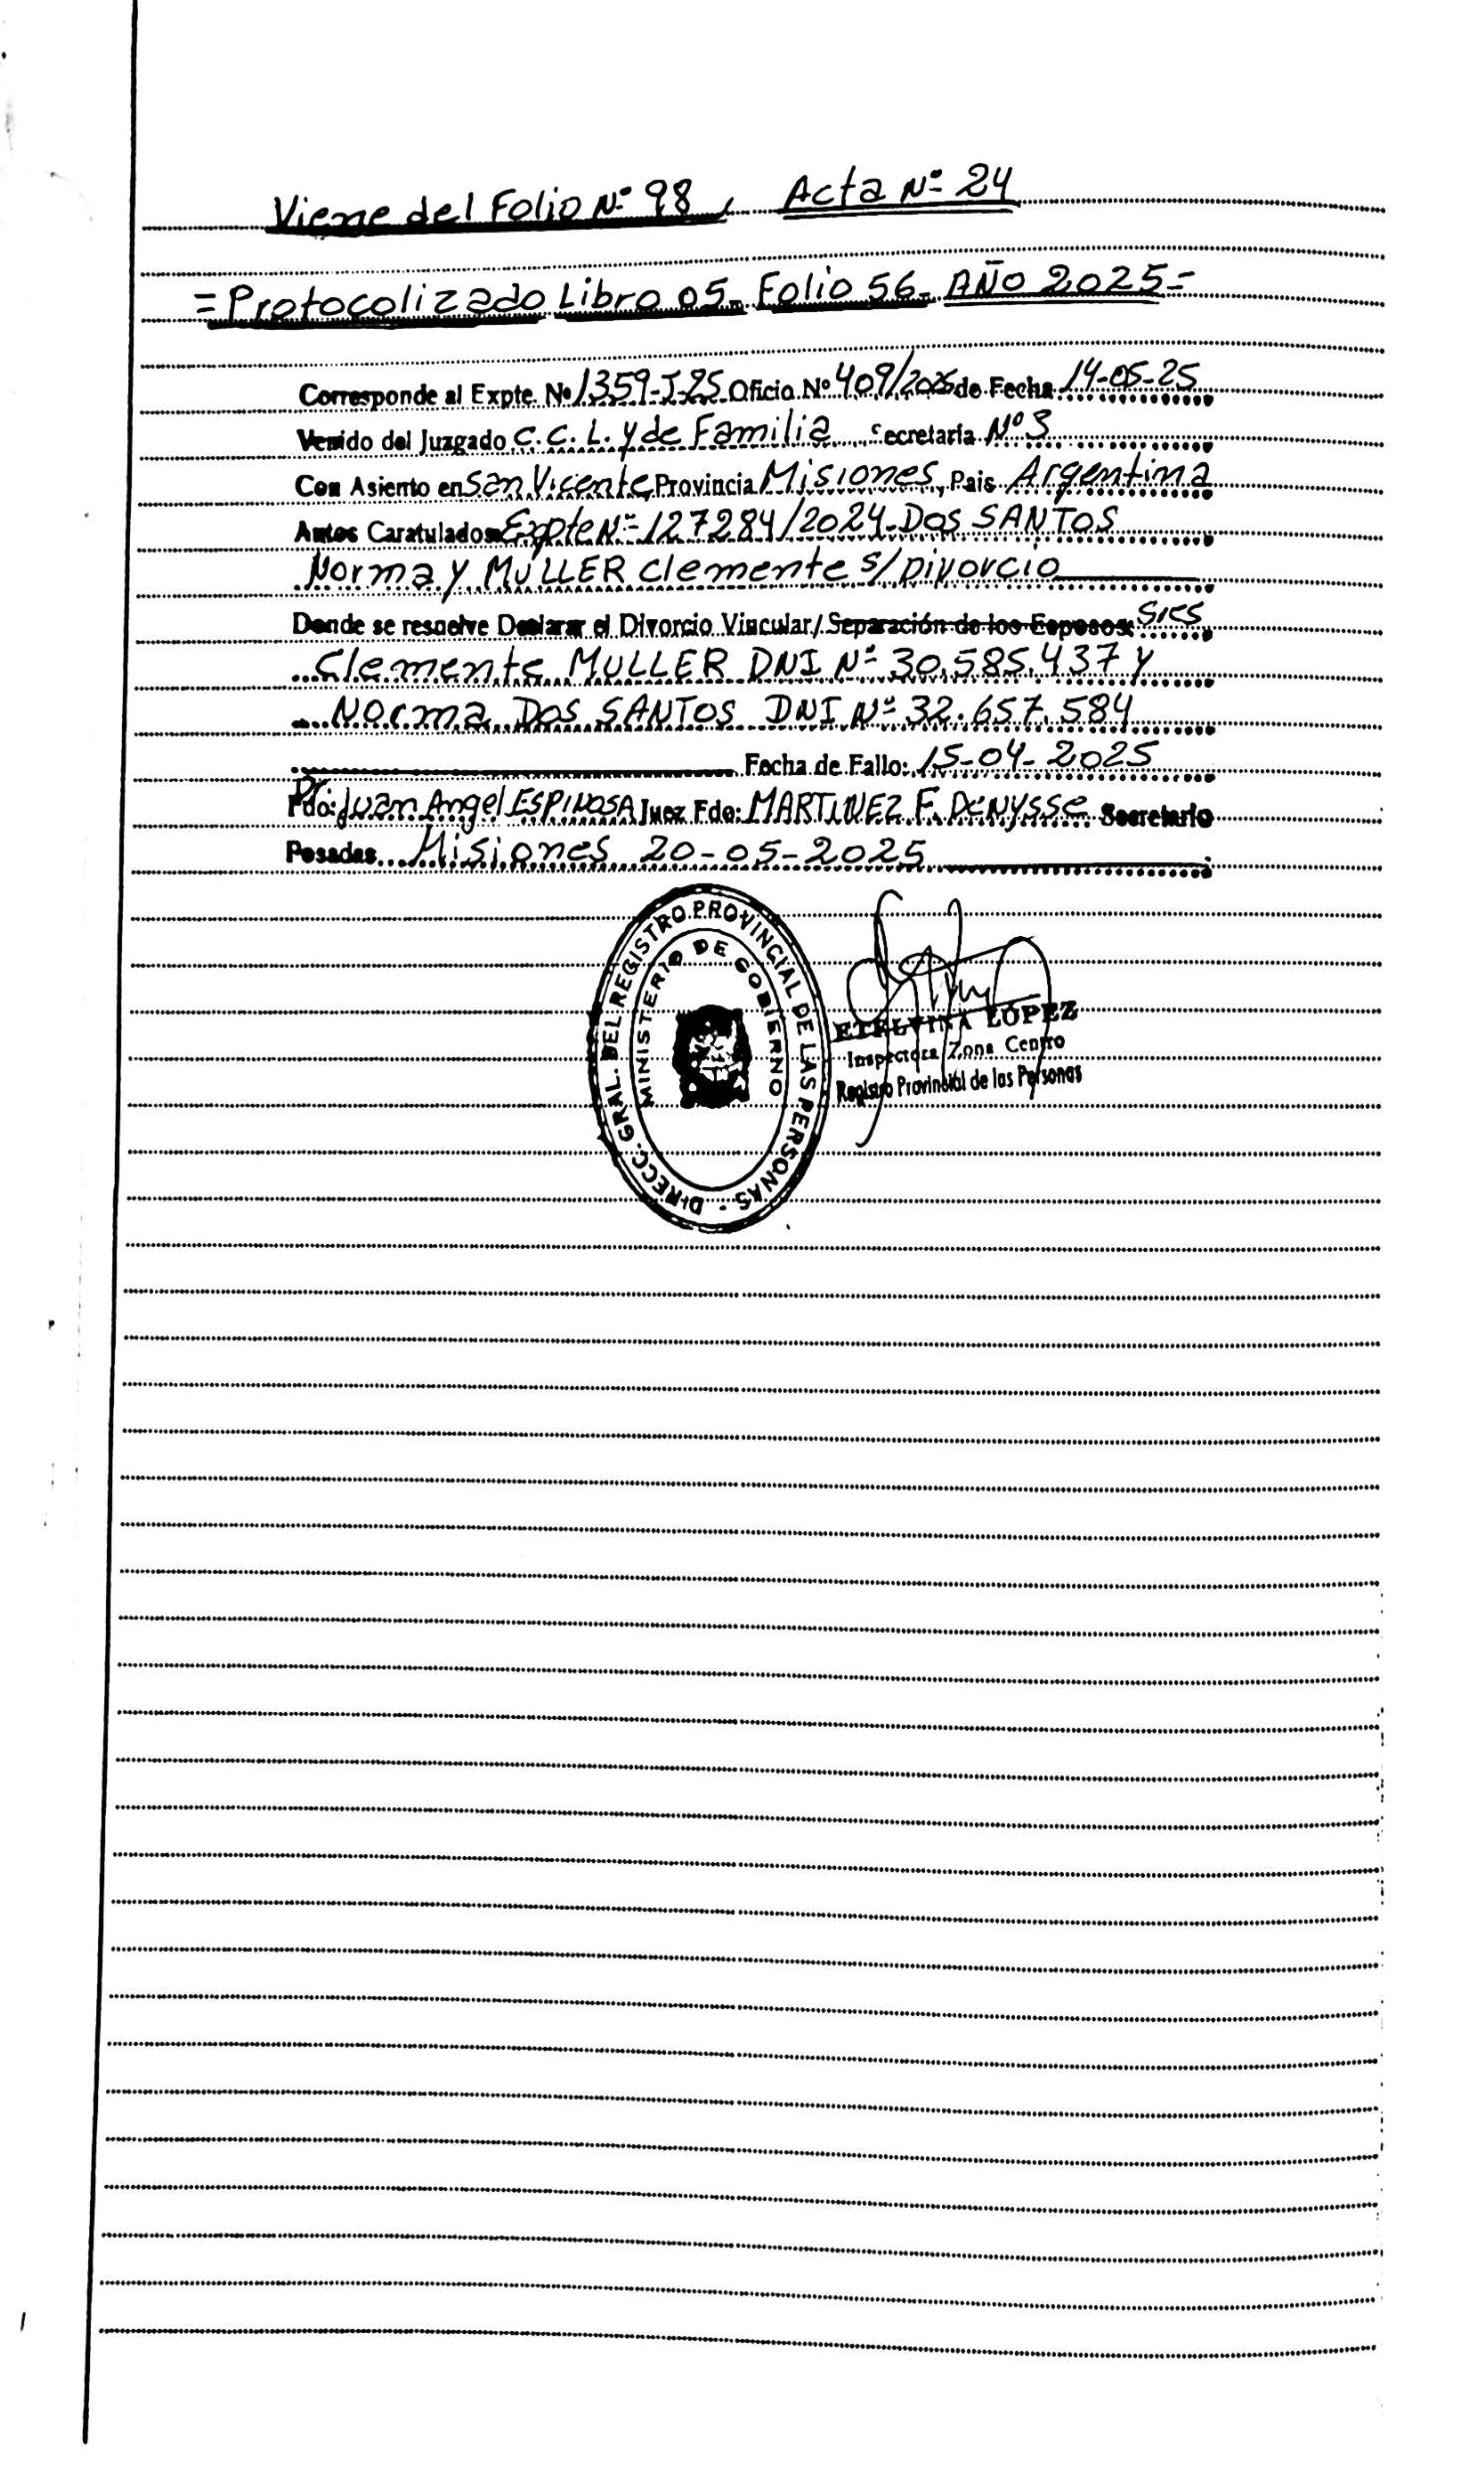 Viene del Folio Nº 98, Acta Nº 24
=Protocolizado Libro 05- Folio 56- AÑO 2025=
Corresponde al Expte. Nº 1359-I-25 Oficio Nº 409/2025 de Fecha 14-05-25
Venido del Juzgado C.C.L. y de Familia Secretaría Nº 3
Con Asiento en San Vicente, Provincia Misiones, Pais Argentina
Autos Caratulados Expte Nº 127284/2024-DOS SANTOS
Norma y MULLER Clemente s/ Divorcio
Donde se resuelve Declarar el Divorcio Vincular/ Separación de los Esposos: Sres
Clemente MULLER DNI Nº 30.585.437 y
Norma DOS SANTOS DNI Nº 32.657.584
Fecha de Fallo: 15-04-2025
Fdo: Dr. Juan Angel ESPINOSA Juez Fdo: MARTINEZ F. Denysse Secretario
Posadas Misiones 20-05-2025
DIRECC. GRAL. DEL REGISTRO PROVINCIAL DE LAS PERSONAS -
MINISTERIO DE GOBIERNO
ETELVINA LÓPEZ
Inspectora Zona Centro
Registro Provincial de las Personas